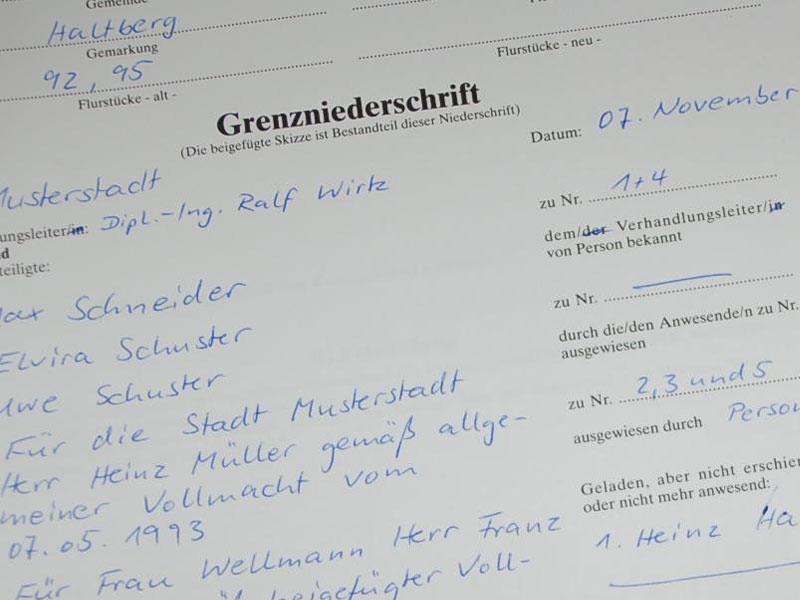 Gemeinde
Haltberg
Gemarkung
92, 95
Flurstücke - alt -
Flurstücke - neu -
Grenzniederschrift
(Die beigefügte Skizze ist Bestandteil dieser Niederschrift)
Datum: 07. November
Musterstadt
ungsleiter/in: Dipl.-Ing. Ralf Wirtz
d
teiligte:
zu Nr. 1+4
dem/der Verhandlungsleiter/in
von Person bekannt
ax Schneider
Elvira Schuster
Uwe Schuster
Für die Stadt Musterstadt
Herr Heinz Müller gemäß allge-
meiner Vollmacht vom
07.05.1993
Für Frau Wellmann Herr Franz
beigefügter Voll-
zu Nr.
durch die/den Anwesende/n zu Nr.
ausgewiesen
zu Nr. 2,3 und 5
ausgewiesen durch Person
Geladen, aber nicht erschie
oder nicht mehr anwesend:
1. Heinz Ha